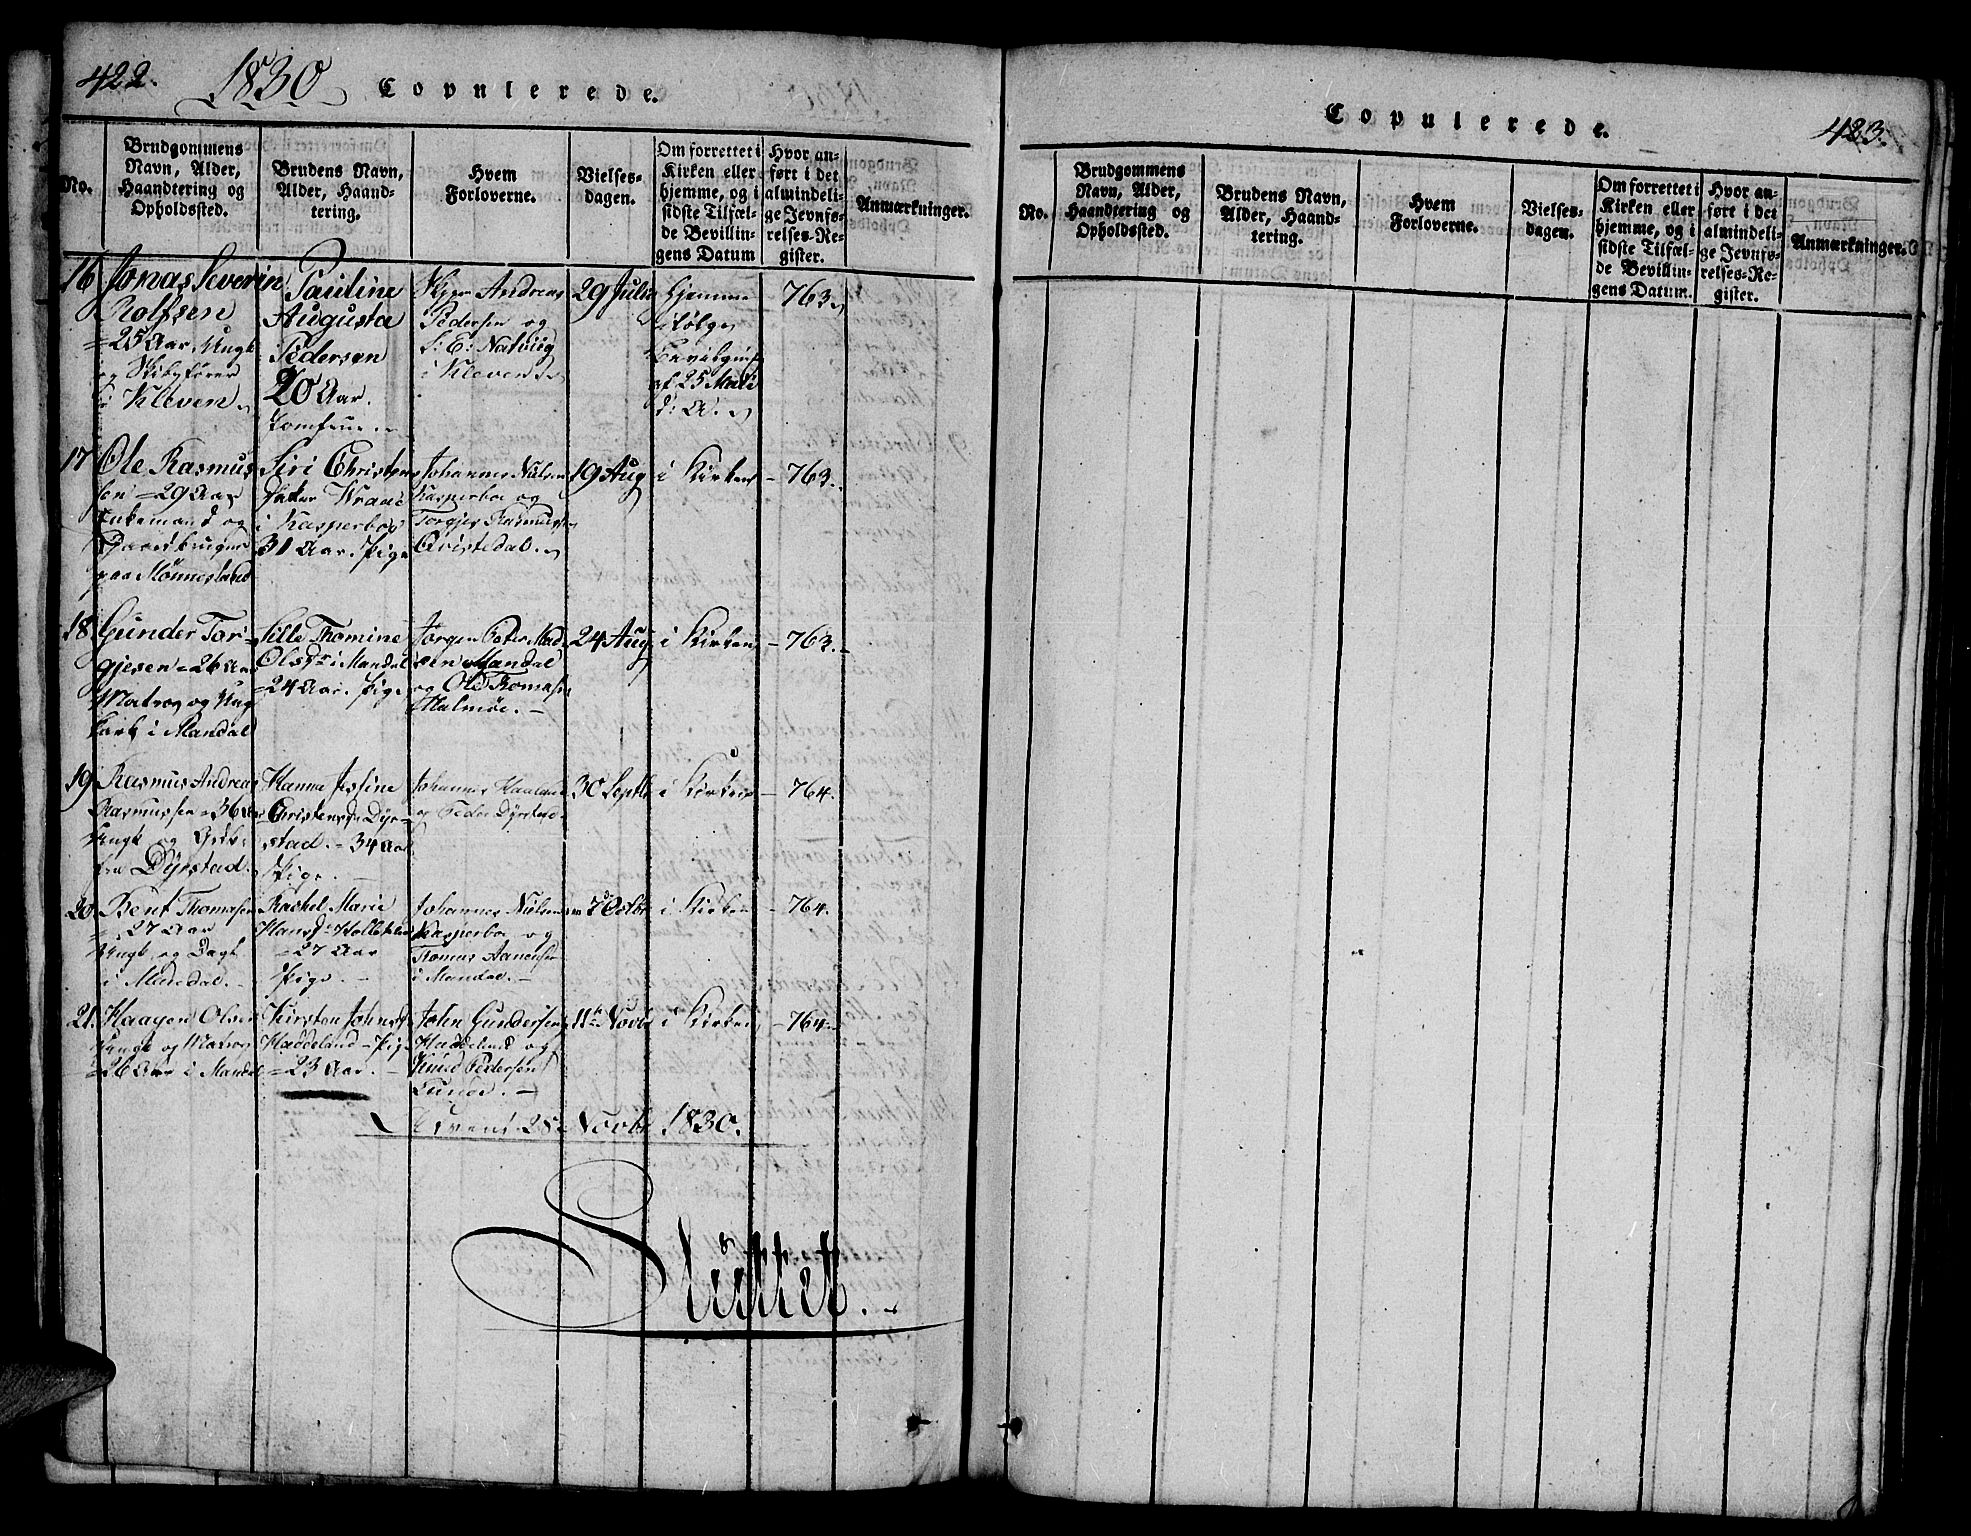 422. 1830 Copulerede.
No.
Brudgommens
Navn, Alder,
Haandtering og
Opholdssted.
Brudens Navn,
Alder, Haand-
tering.
Hvem
Forloverne.
Vielses-
dagen.
Om forrettet i
Kirken eller
hjemme, og i
sidste Tilfæl-
de Bevillin-
gens Datum
Hvor an-
ført i det
almindeli-
ge Jevnfø-
relses-Re-
gister.
Anmærkninger.
16 Jonas Severin
Rolfsen
25 Aar, Ungk
og Skibsfører
i Kleven
Pauline
Augusta
Pedersen
20 Aar.
Jomfrue
Andreas
Pedersen og
S: E: Natvig
i Kleven
29 Julii
Hjemme
ifølge
af 25 Maii
d: A.
763.
17 Ole Rasmus
sen 29 Aar
Enkemand og
Gaardbruger
paa Mønnesland
Siri Christens
Datter
i Kasperboe
31 Aar. Pige
Johannes Nielsen
Kasperboe og
Torgjer Rasmussen
Qvistedal.
19 Aug
i Kirken
763.
18. Gunder Tor-
gjesen 26 Aar
Matros og Ung
karl i Mandal
Sille Thomine
Olsdr i Mandal
24 Aar. Pige
Jørgen Peter Mad
sen Mandal
og Ole Thomasen
Malmøe.
24 Aug
i Kirken
763.
19. Rasmus Andreas
Rasmussen 36 Aar
Ungk og
fra Dyrstad.
Hanna Jesine
Christensdr Dyr-
stad. 34 Aar
Pige.
Johannes
og Peder Dyrstad.
30 Septbr
i Kirken
764.
20. Bent Thomasen
27 Aar
Ungk og
i Mandal.
Rachel Marie
Hansdr
27 Aar
Pige.
Johannes Nielsen
Kasperboe og
Thomas Aanensen
i Mandal.
7 Octbr
i Kirken
764.
21. Haagen Olsen
Ungk og Matros
26 Aar i Mandal
Kirsten Johnsdr
Haddeland Pige
23 Aar.
John Gundersen
Haddeland og
Knud Pedersen
Lunde.
11te Novbr
i Kirken
764.
28 Novbr 1830.
Sluttet.
Copulerede. 423.
No.
Brudgommens
Navn, Alder,
Haandtering og
Opholdssted.
Brudens Navn,
Alder, Haand-
tering.
Hvem
Forloverne.
Vielses-
dagen.
Om forrettet i
Kirken eller
hjemme, og i
sidste Tilfæl-
de Bevillin-
gens Datum.
Hvor an-
ført i det
almindeli-
ge Jevnfø-
relses-Re-
gister.
Anmærkninger.